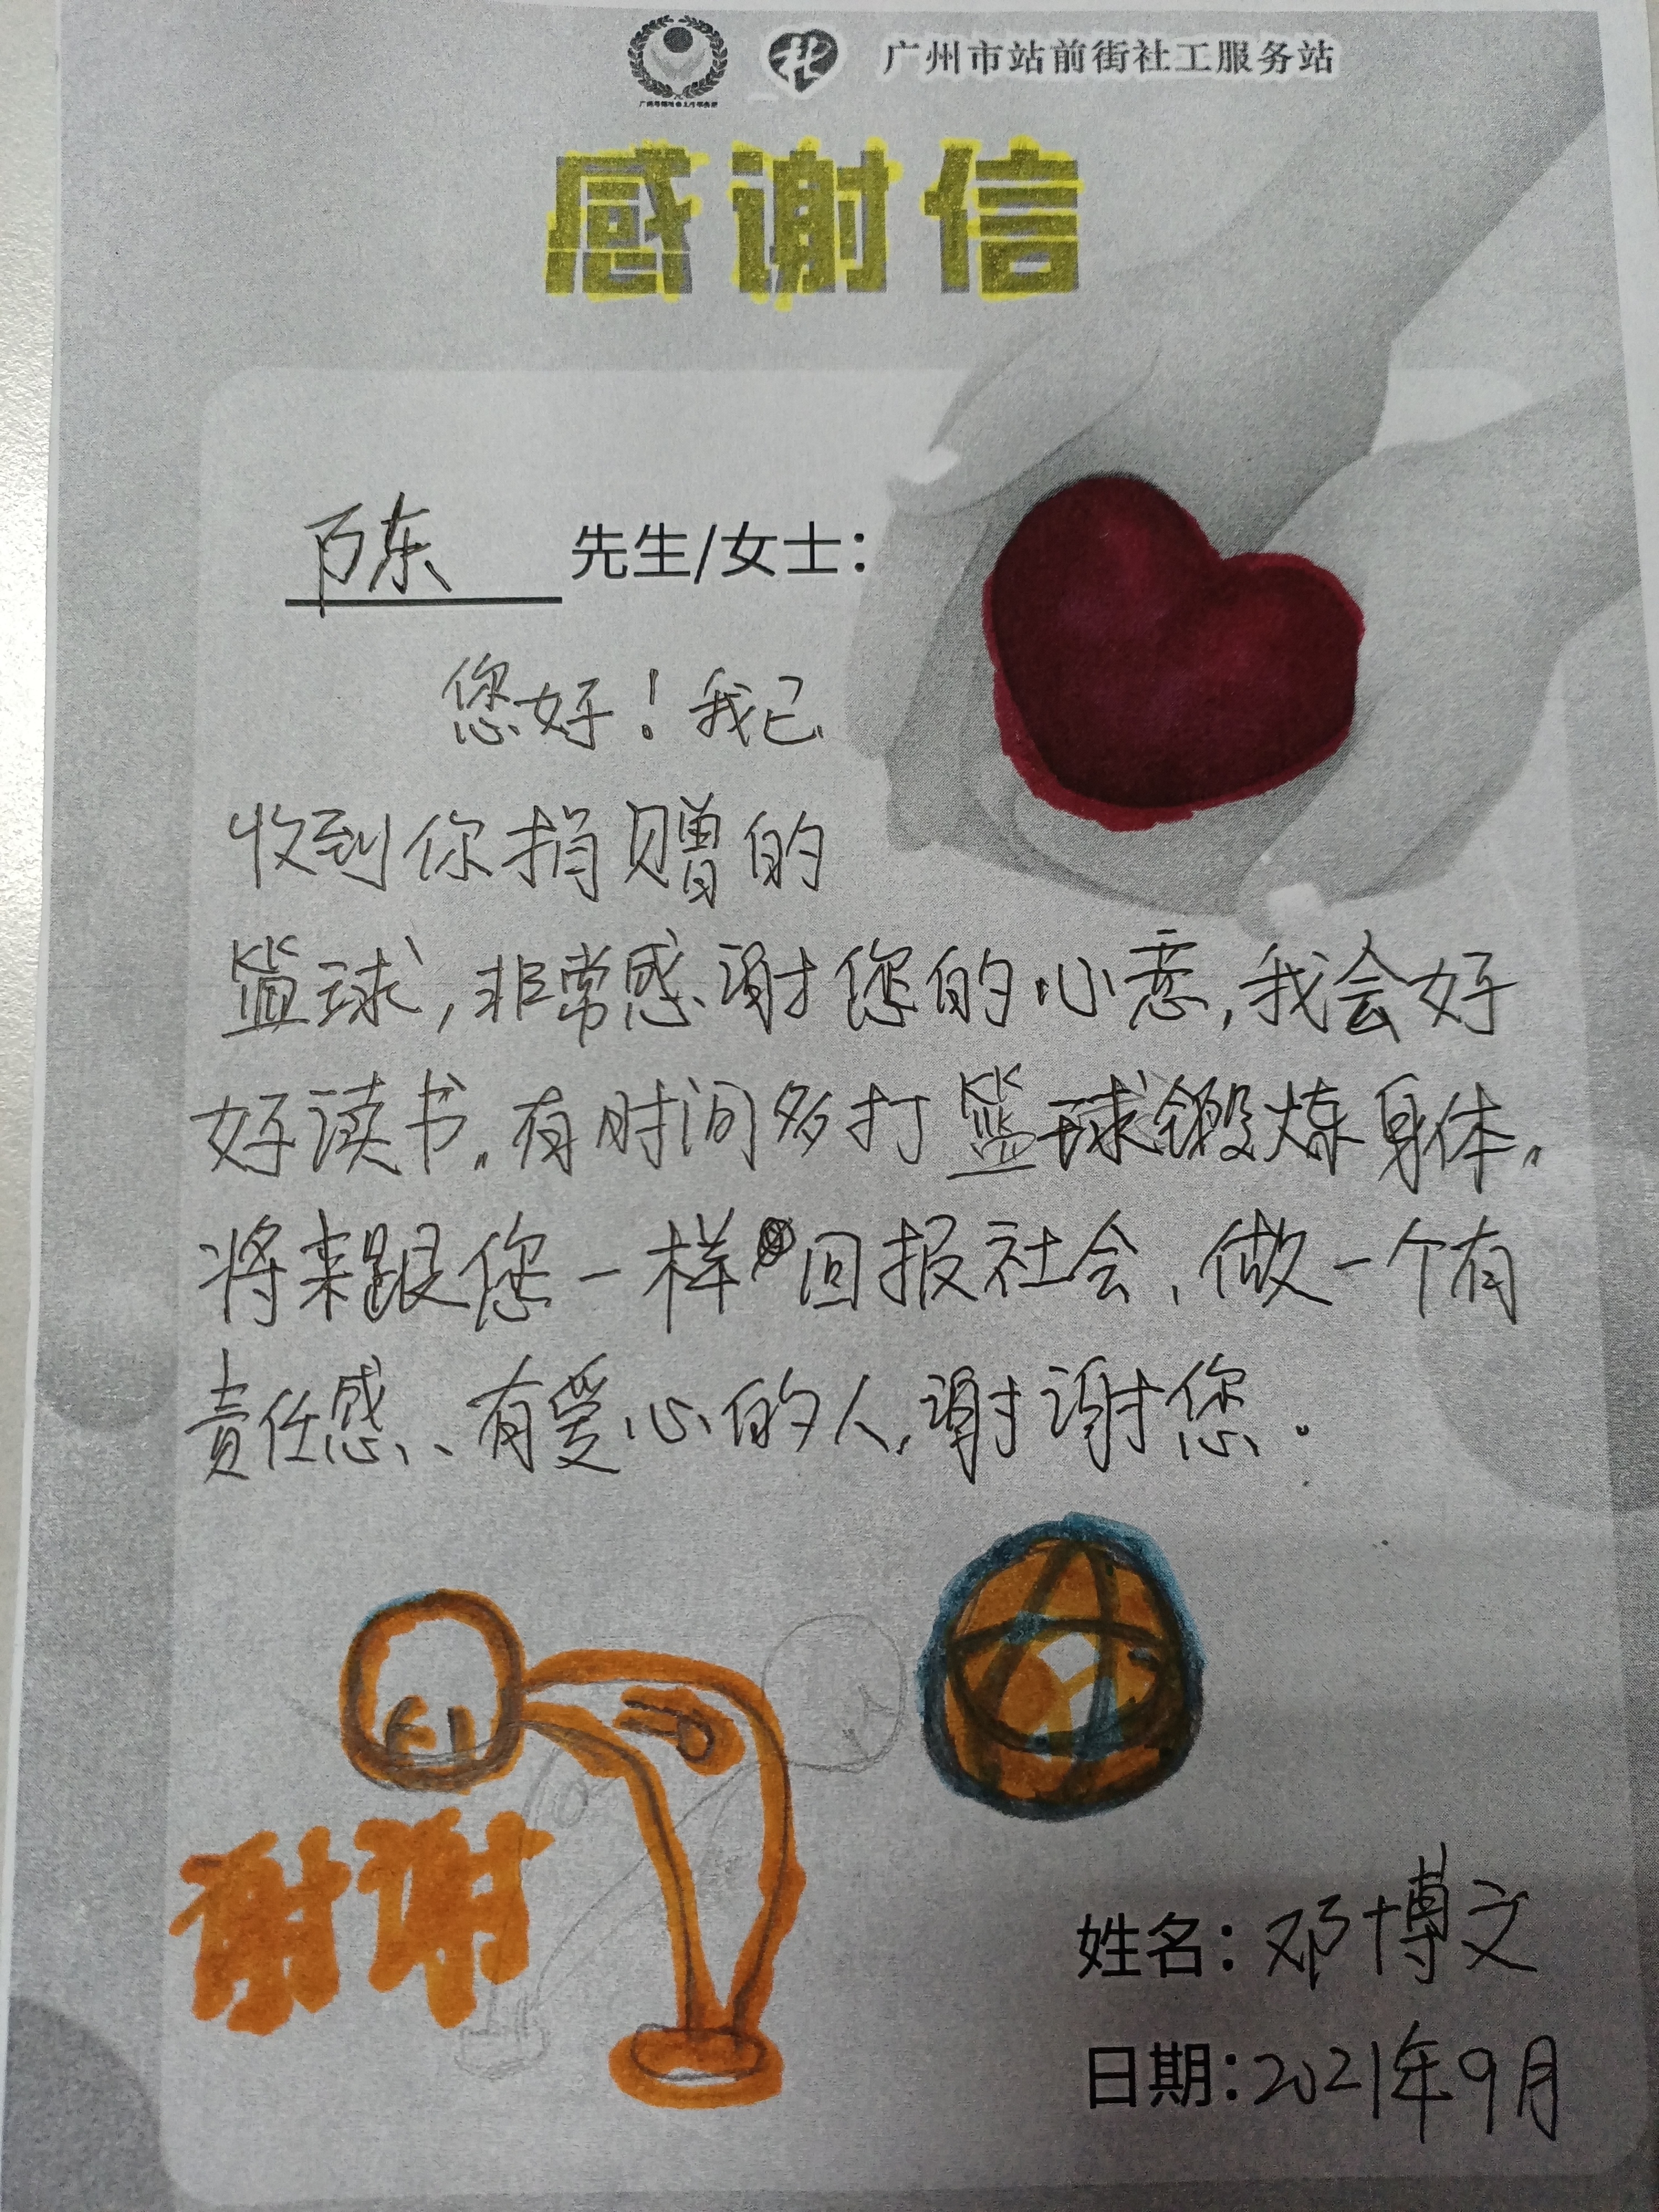 广州市站前街社工服务站
感谢信
陈 先生/女士：
您好！我已
收到你捐赠的
篮球，非常感谢您的心意，我会好
好读书。有时间多打篮球锻炼身体。
将来跟您一样回报社会，做一个有
责任感、有爱心的人，谢谢您.
谢谢
姓名：邓博文
日期：2021年9月